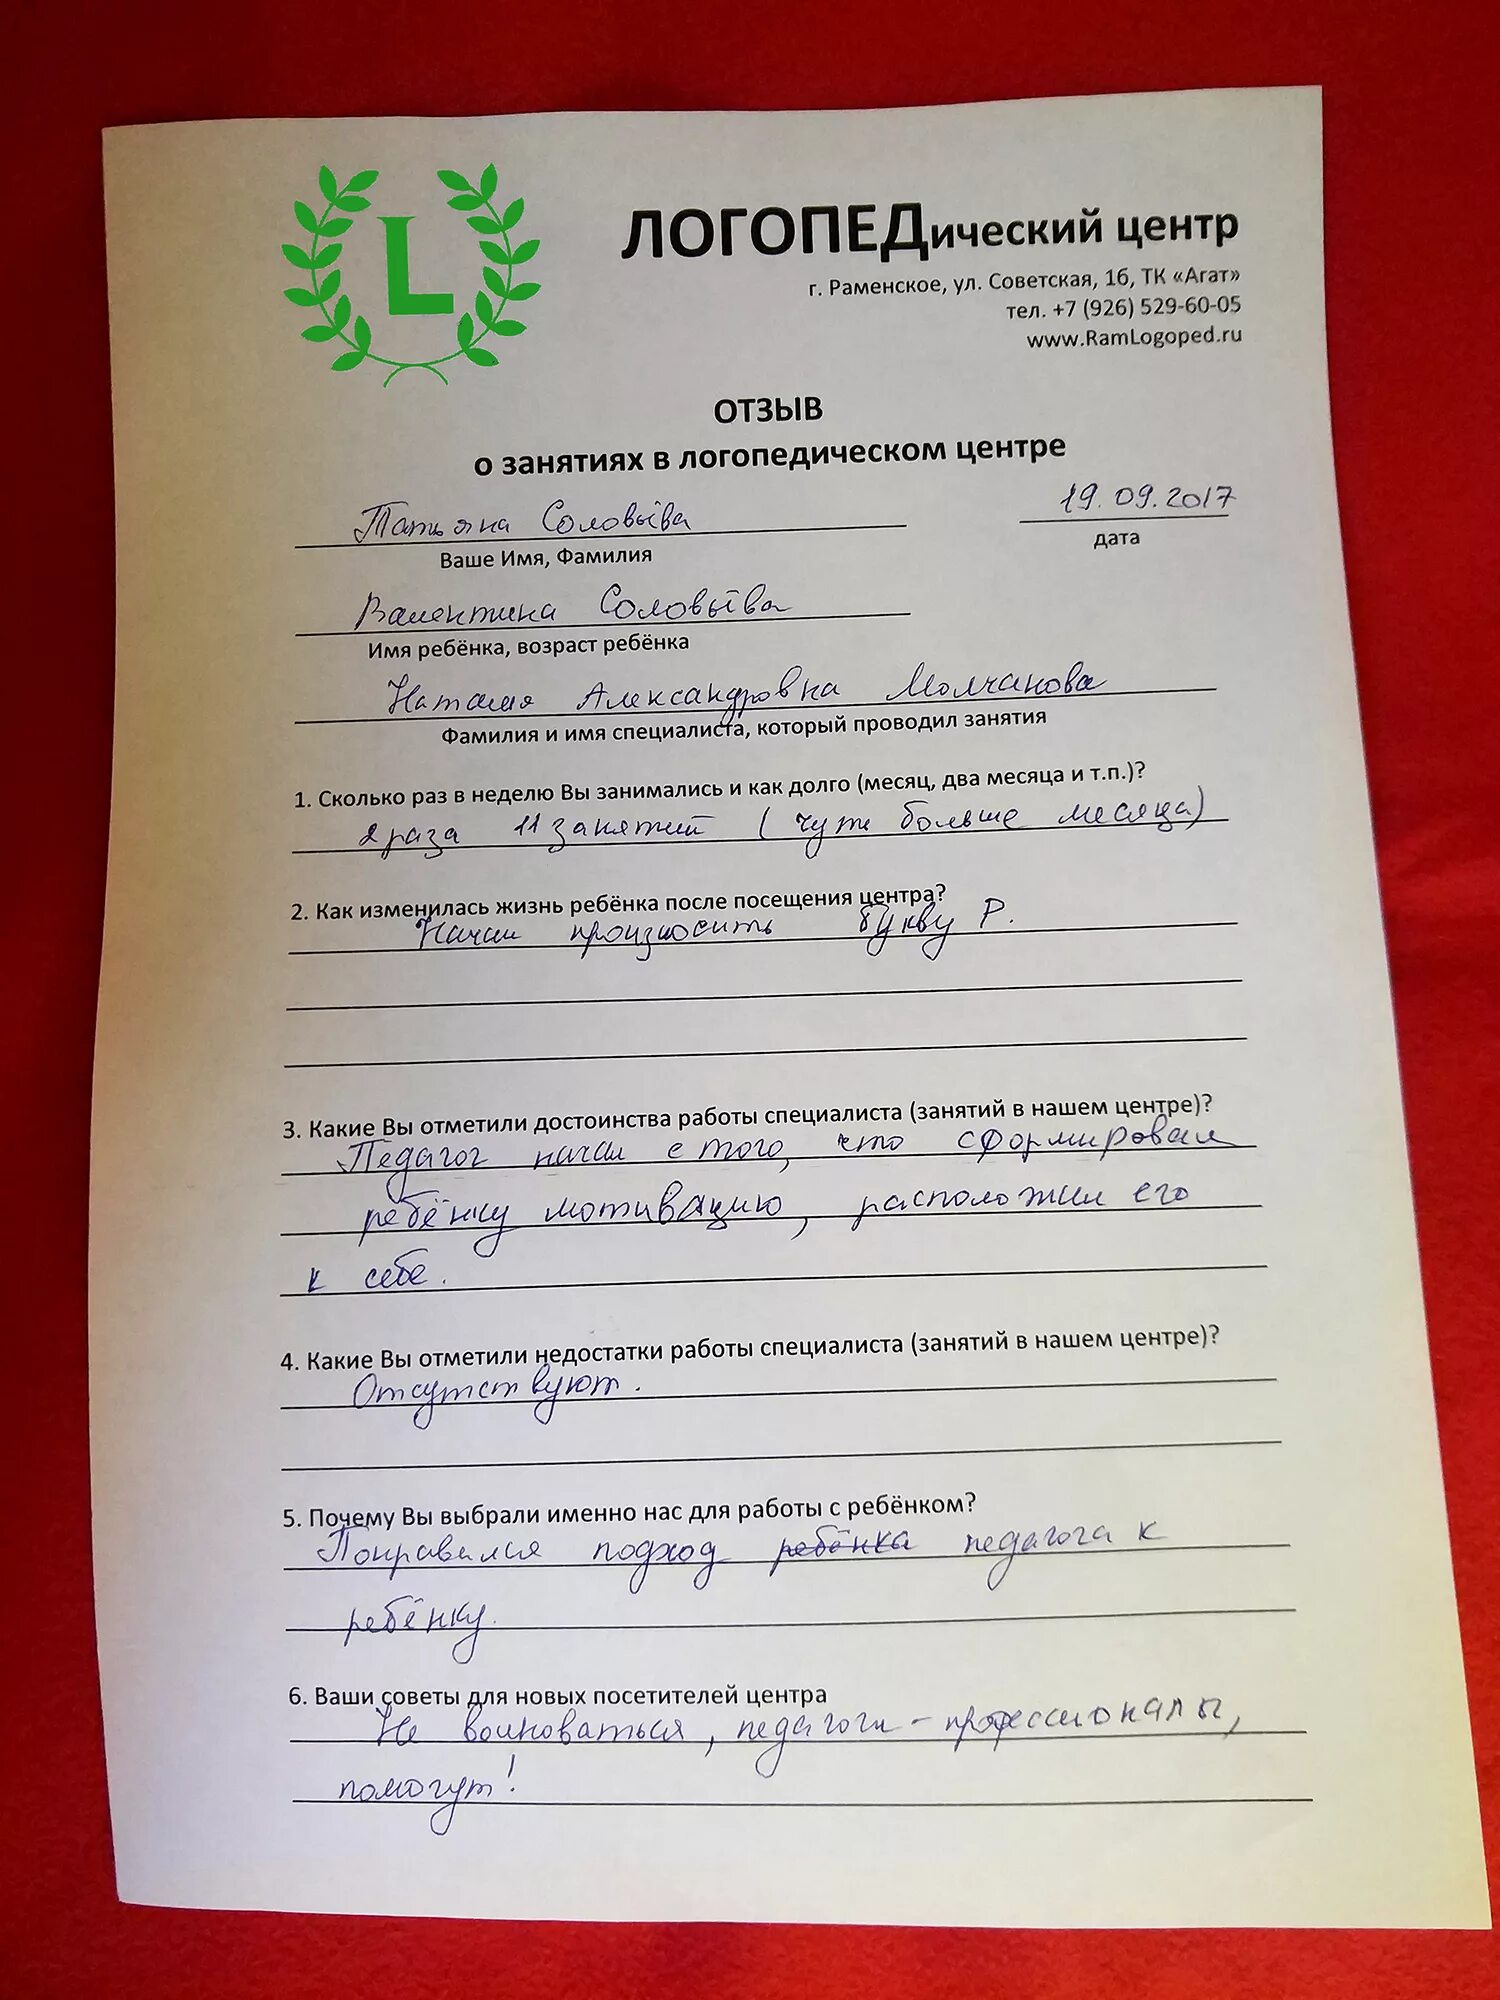 L
ЛОГОПЕДический центр
г. Раменское, ул. Советская, 16, ТК «Агат»
тел. +7 (926) 529-60-05
www.RamLogoped.ru
ОТЗЫВ
о занятиях в логопедическом центре
Татьяна Соловьёва 19.09.2017
Ваше Имя, Фамилия дата
Валентина Соловьёва
Имя ребёнка, возраст ребёнка
Наталия Александровна Молчанова
Фамилия и имя специалиста, который проводил занятия
1. Сколько раз в неделю Вы занимались и как долго (месяц, два месяца и т.п.)?
2 раза 11 занятий (чуть больше месяца)
2. Как изменилась жизнь ребёнка после посещения центра?
Начал произносить букву Р.
3. Какие Вы отметили достоинства работы специалиста (занятий в нашем центре)?
Педагог начал с того, что сформировал
ребёнку мотивацию, расположил его
к себе.
4. Какие Вы отметили недостатки работы специалиста (занятий в нашем центре)?
Отсутствуют.
5. Почему Вы выбрали именно нас для работы с ребёнком?
Понравился подход ребёнка педагога к
ребёнку.
6. Ваши советы для новых посетителей центра
Не волноваться, педагоги - профессионалы,
помогут!